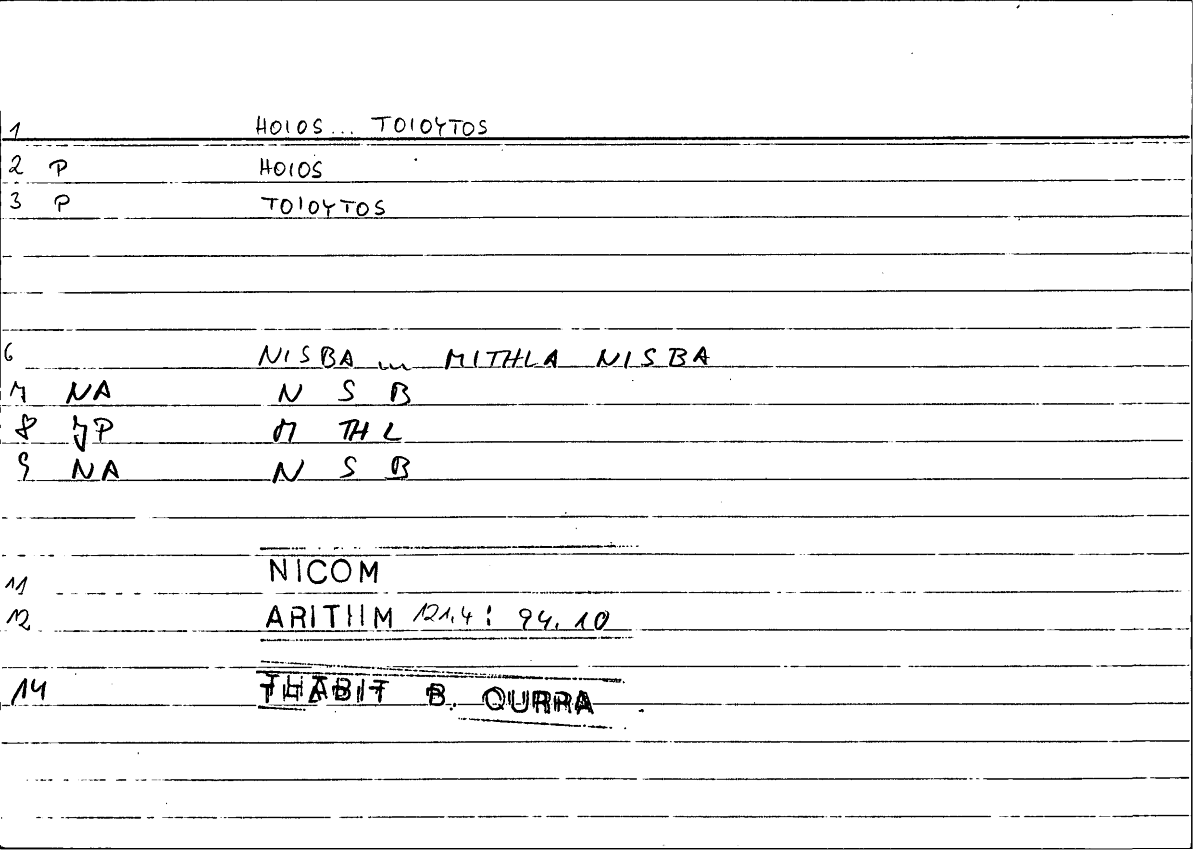 1 HOIOS... TOIOYTOS
2 P HOIOS
3 P TOIOYTOS
6 NISBA ... MITHLA NISBA
7 NA N S B
8 JP M TH L
9 NA N S B
11 NICOM
12 ARITHM 121,4: 94.10
14 THABIT B. QURRA